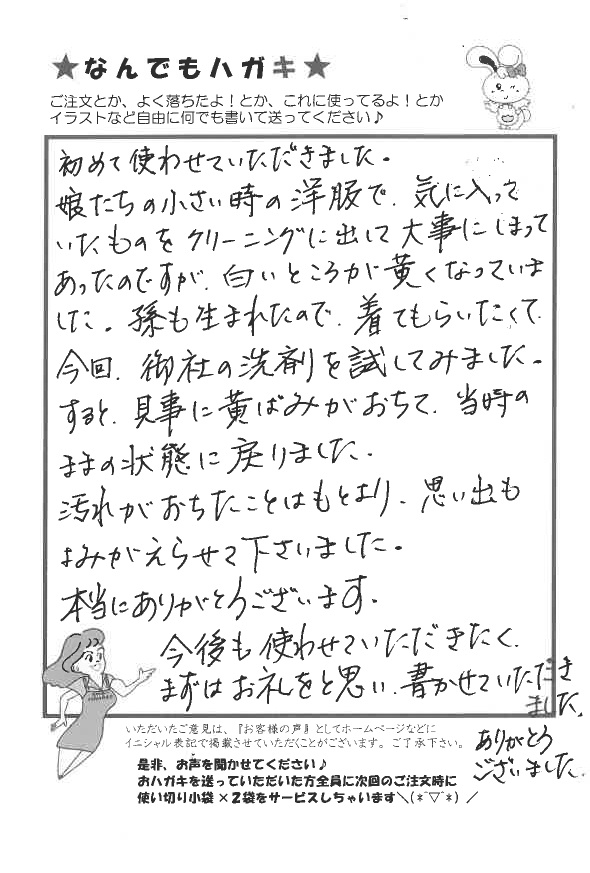 ★なんでもハガキ★
ご注文とか、よく落ちたよ！とか、これに使ってるよ！とか
イラストなど自由に何でも書いて送ってください♪
初めて使わせていただきました。
娘たちの小さい時の洋服で、気に入って
いたものをクリーニングに出して大事にしまって
あったのですが、白いところが黄くなっていま
した。孫も生まれたので、着てもらいたくて、
今回、御社の洗剤を試してみました。
すると、見事に黄ばみがおちて、当時の
ままの状態に戻りました。
汚れがおちたことはもとより、思い出も
よみがえらせて下さいました。
本当にありがとうございます。
今後も使わせていただきたく、
まずはお礼をと思い、書かせていただき
ました。
ありがとう
ございました。
いただいたご意見は、『お客様の声』としてホームページなどに
イニシャル表記で掲載させていただくことがございます。ご了承下さい。
是非、お声を聞かせてください♪
おハガキを送っていただいた方全員に次回のご注文時に
使い切り小袋×２袋をサービスしちゃいます＼(*ˉ▽ˉ*)／